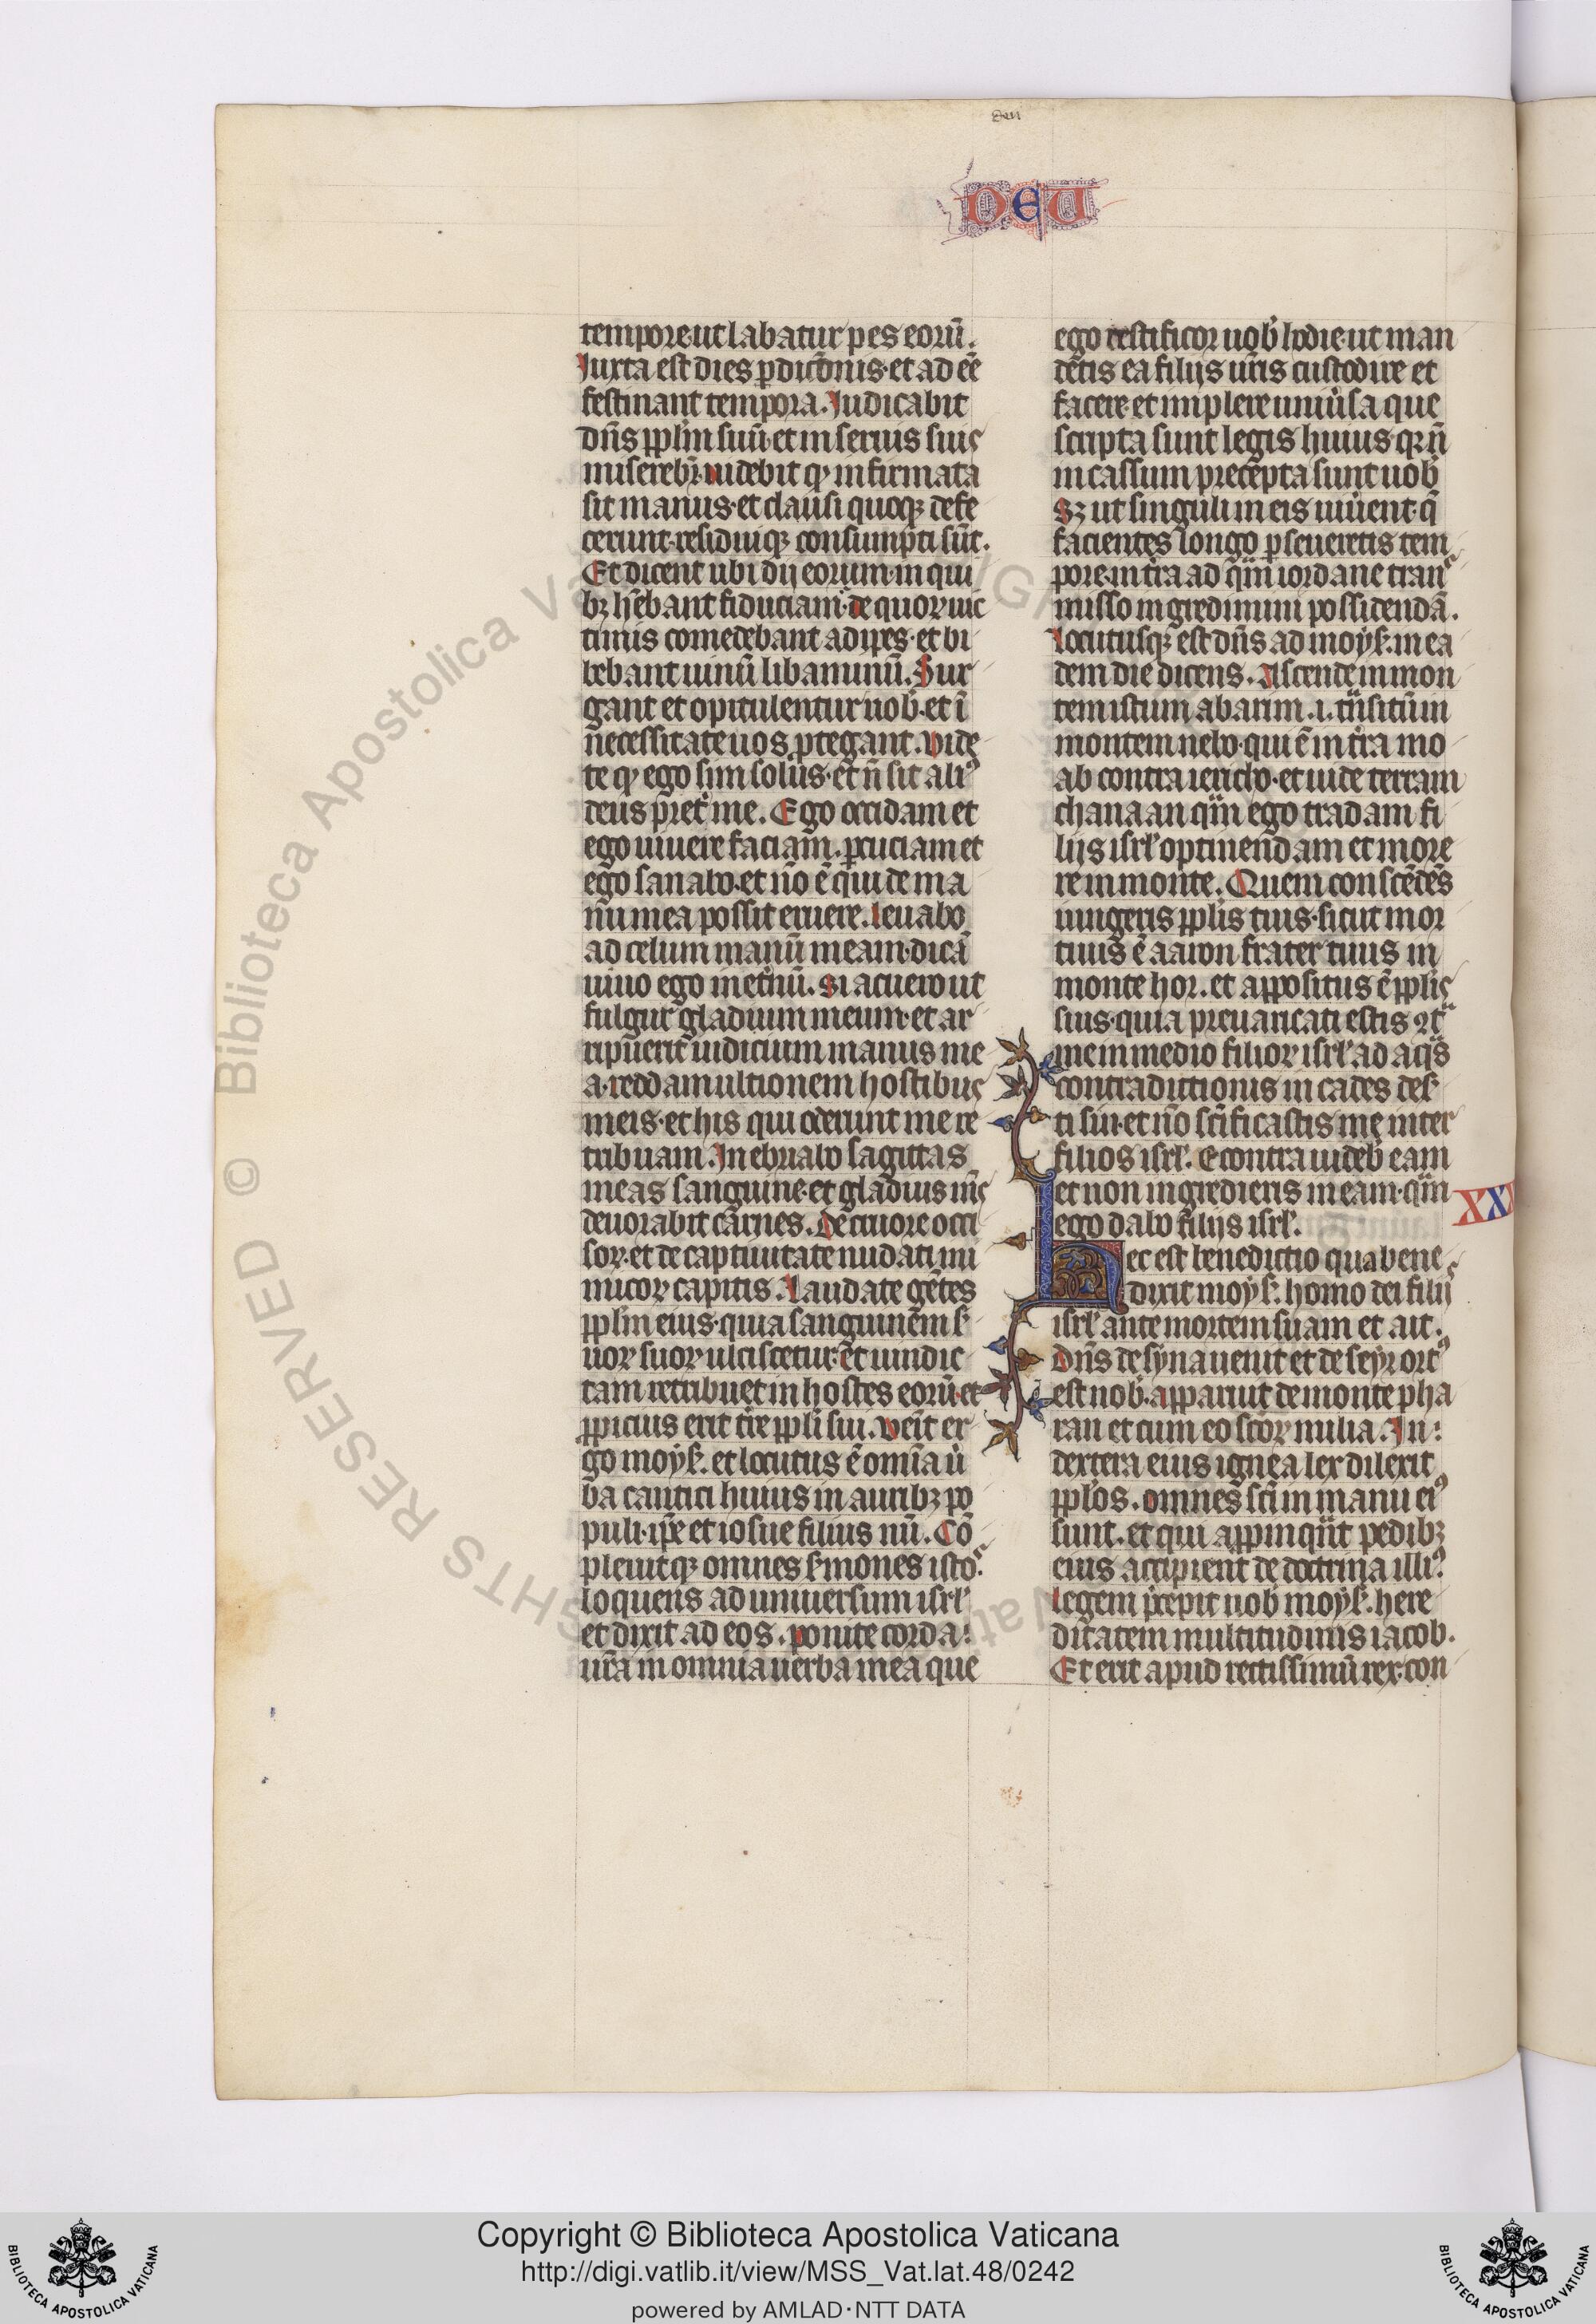 deu
DEU
tempore·ut labatur pes eorū.
Juxta est dies pditōnis·et ad eē
festinant tempora. Judicabit
dn̄s ppl̄m suū·et in seruis suis
misereb̄r·uidebit qꝫ infirmata
sit manus·et clausi quoqꝫ defe
cerunt·residuiqꝫ consumpti sūt.
Et dicent ubi dij eorum·in qui
bꝫ hēbant fiduciam·de quoꝝ uic
timis comedebant adipes·et bi
bebant uinū libaminū. Sur
gant et opitulentur uob̄·et ī
necessitate uos ptegant. Vide
te qꝫ ego sim solus·et n̄ sit aliꝰ
deus pret̄ me. Ego occidam et
ego uiuere faciam. pcuciam et
ego sanabo·et nō ē qui de ma
nu mea possit eruere. leuabo
ad celum manū meam·dicā
uiuo ego in et̄nū. Si acuero ut
fulgur gladium meum·et ar
ripuerit iudicium manus me
a·reddam ultionem hostibus
meis·et his qui oderunt me re
tribuam. Inebriabo sagittas
meas sanguine·et gladius m̄s
deuorabit carnes. De cruore occi
soꝝ·et de captiuitate nudati ini
micoꝝ capitis. Laudate gētes
ppl̄m eius·quia sanguinem s̄
uoꝝ suoꝝ ulciscetur·et uindic
tam retribuet in hostes eorū·et
ppicius erit tr̄e ppl̄i sui. Venit er
go moys̄. et locutus ē omīa u̇
ba cantici huius in auribꝫ po
puli·ip̄e et iosue filius nū. Cō
pleuitqꝫ omnes s̄mones istos
loquens ad uniuersum isrl̄
et dixit ad eos. ponite corda
ur̄a in omnia uerba mea que
ego testificor uob̄ hodie·ut man
detis ea filijs ur̄is custodire et
facere·et implere uniūsa que
scripta sunt legis huius·qꝛ n̄
incassum precepta sunt uob̄
Sꝫ ut singuli in eis uiuerent·q̄
facientes longo pseueretis tem
pore·in tr̄a ad qm̄ iordane trans
misso ingredimini possidendā.
Locutusqꝫ est dn̄s ad moys̄. in ea
dem die dicens. Ascende in mon
tem istum abarim .i. tn̄situm in
montem nebo·qui ē in tr̄a mo
ab contra iericho·et uide terram
chanaan qm̄ ego tradam fi
lijs isrl̄ optinendam et more
re in monte. Quem conscēdēs
iungeris ppl̄is tuis·sicut mor
tuus ē aaron frater tuus in
monte hor. et appositus ē ppl̄is
suis·quia preuaricati estis ꝯt̄
me in medio filioꝝ isrl̄ ad aq̄s
contradictionis in cades des̄
ti sin·et nō sc̄ificastis me inter
filios isrl̄. Econtra uideb̄ eam
et non ingredieris in eam·qm̄
ego dabo filijs isrl̄.
XXX
Hec est benedictio qua bene
dixit moys̄. homo dei filijs
isrl̄ ante mortem suam et ait.
Dn̄s de syna uenit et de seyr ortꝰ
est nob̄. apparuit de monte pha
ran et cum eo sc̄oꝝ milia. In
dextera eius ignea lex dilexit
ppl̄os. omnes sc̄i in manu eiꝰ
sunt. et qui appinqn̄t pedibꝫ
eius accipient de doctrina illiꝰ.
Legem p̄cepit nob̄ moys̄. here
ditatem multitudinis iacob.
Et erit apud rectissimū rex·con
© Biblioteca Apostolica Vaticana
RIGHTS RESERVED
Copyright © Biblioteca Apostolica Vaticana
http://digi.vatlib.it/view/MSS_Vat.lat.48/0242
powered by AMLAD·NTT DATA
BIBLIOTECA APOSTOLICA VATICANA
BIBLIOTECA APOSTOLICA VATICANA